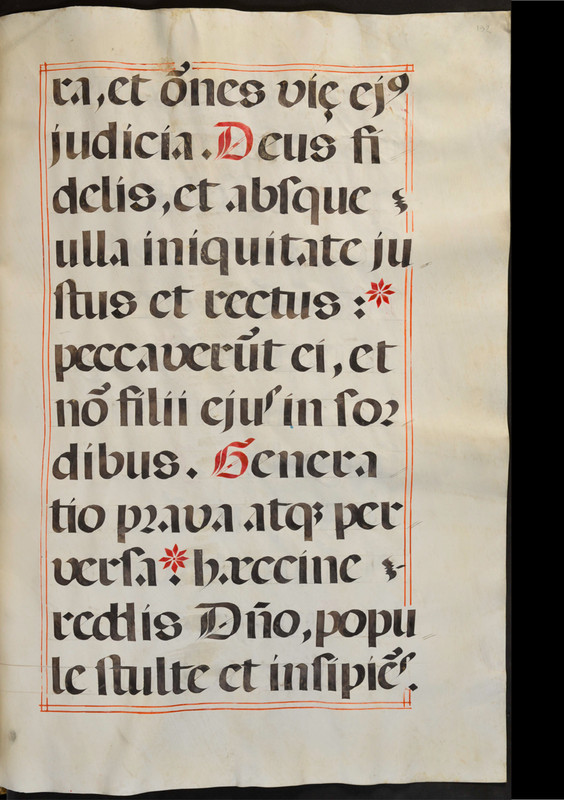 ra, et õnes vię ejꝰ
judicia. Deus fi
delis, et absque
ulla iniquitate ju
stus et rectus :*
peccaverũt ei, et
nõ filii ejus in sor
dibus. Genera
tio prava atqꝫ per
versa * : hæccine
reddis Dño, popu
le stulte et insipiẽs.